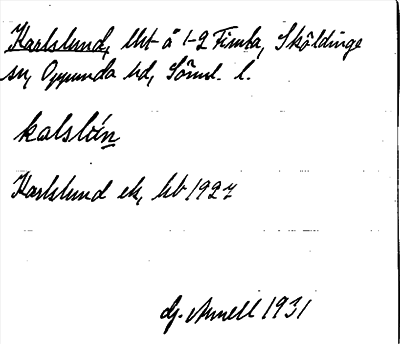 Karlslund, lht å 1-2 Fimta, Sköldinge
sn, Oppunda hd, Söml. l.
kalslún
Karlslund ek, hb 1927
Gj. Annell 1931